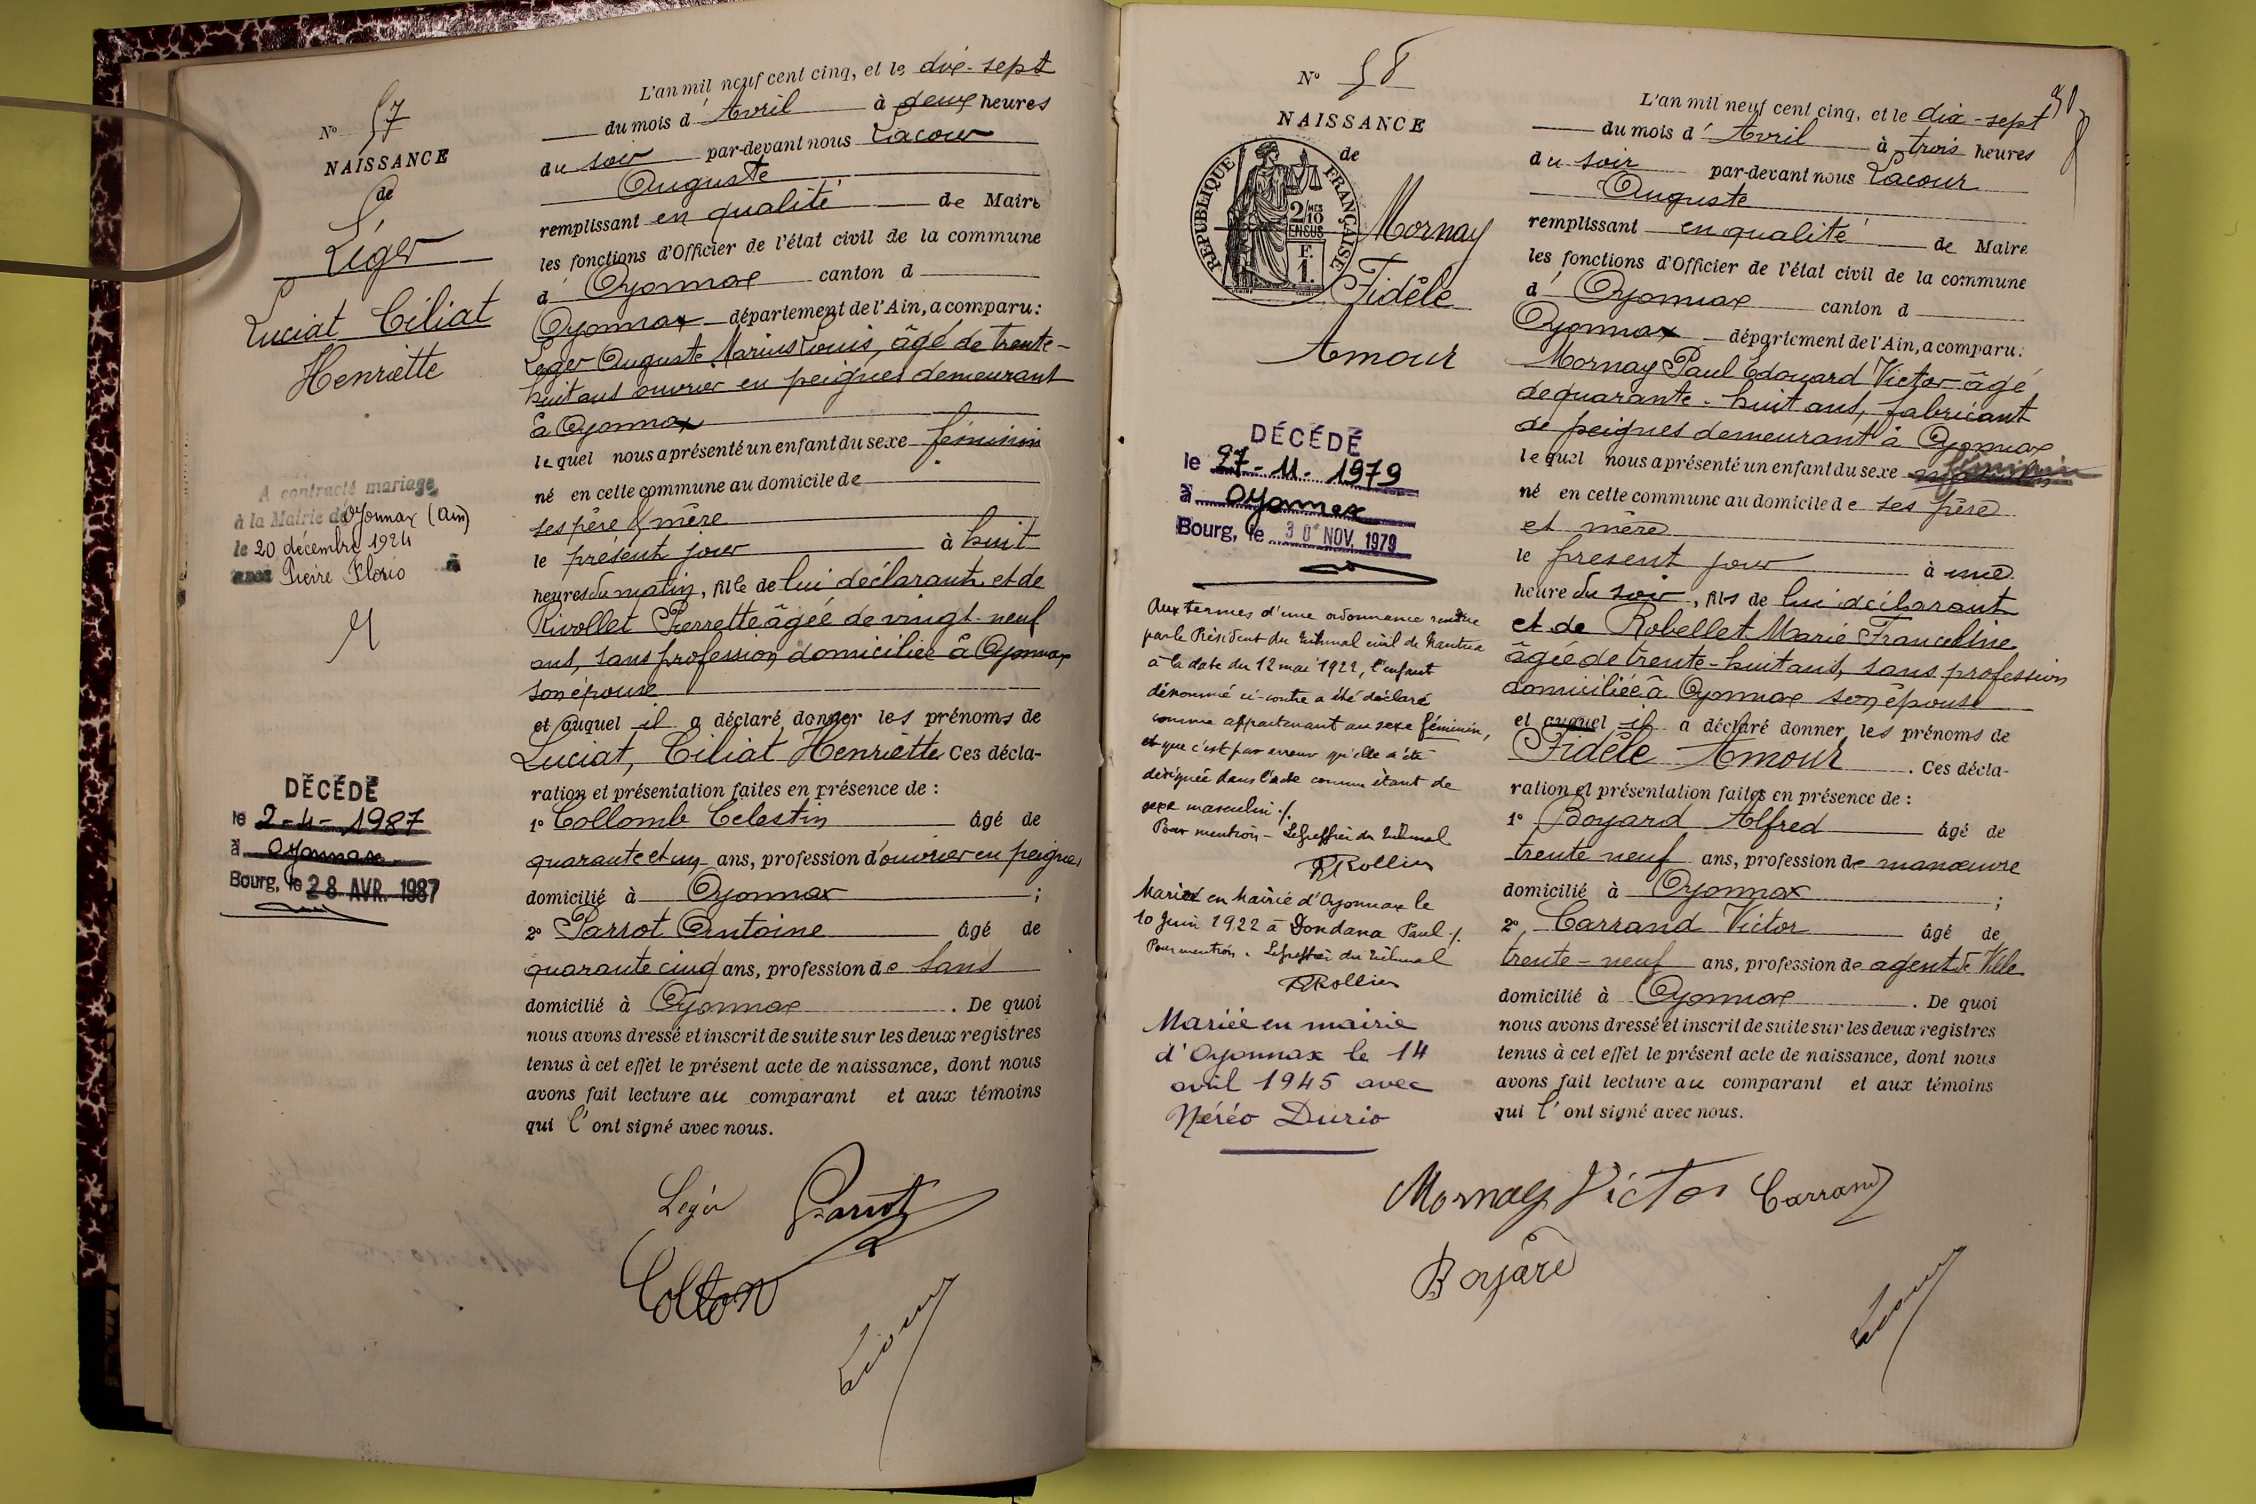 N° 57
NAISSANCE
de
Léger
Luciat Ciliat
Henriette
A contracté mariage
à la Mairie de Oyonnax (Ain)
le 20 décembre 1924
avec Pierre Florio
DÉCÉDÉ
le 2-4-1987
à Oyonnax
Bourg, le 28 AVR. 1987
L'an mil neuf cent cinq, et le dix-sept
du mois d'Avril à deux heures
du soir par-devant nous Lacour
Auguste
remplissant en qualité de Maire
les fonctions d'Officier de l'état civil de la commune
d' Oyonnax canton d
Oyonnax département de l'Ain, a comparu:
Leger Auguste Marius Louis, âgé de trente-
huit ans ouvrier en peignes demeurant
à Oyonnax
lequel nous a présenté un enfant du sexe féminin
né en cette commune au domicile de
ses père & mère
le présent jour à huit
heures du matin, fille de lui déclarant et de
Rivollet Pierrette âgée de vingt-neuf
ans, sans profession domiciliée à Oyonnax
son épouse
et auquel il a déclaré donner les prénoms de
Luciat, Ciliat Henriette Ces décla-
ration et présentation faites en présence de :
1° Collomb Célestin âgé de
quarante et un ans, profession d'ouvrier en peignes
domicilié à Oyonnax ;
2° Parrot Antoine âgé de
quarante cinq ans, profession de sans
domicilié à Oyonnax . De quoi
nous avons dressé et inscrit de suite sur les deux registres
tenus à cet effet le présent acte de naissance, dont nous
avons fait lecture au comparant et aux témoins
qui l'ont signé avec nous.
Léger Parrot
Lacour
N° 58
NAISSANCE
de
RÉPUBLIQUE FRANÇAISE
2/10 MES
EN SUS
F.
1.
Mornay
Fidèle
Amour
DÉCÉDÉ
le 27-11-1979
à Oyonnax
Bourg, le 30 NOV. 1979
Aux termes d'une ordonnance rendue
par le Président du tribunal civil de Nantua
à la date du 12 mai 1922, l'enfant
dénommé ci-contre a été déclaré
comme appartenant au sexe féminin,
et que c'est par erreur qu'elle a été
désignée dans l'acte comme étant de
sexe masculin ./.
Pour mention - Le greffier du tribunal
Rollin
Mariée en Mairie d'Oyonnax le
10 Juin 1922 à Dondana Paul ./.
Pour mention. Le greffier du tribunal
Rollin
Mariée en mairie
d'Oyonnax le 14
avril 1945 avec
Néréo Durio
L'an mil neuf cent cinq, et le dix-sept
du mois d'Avril à trois heures
du soir par-devant nous Lacour
Auguste
remplissant en qualité de Maire
les fonctions d'Officier de l'état civil de la commune
d' Oyonnax canton d
Oyonnax département de l'Ain, a comparu:
Mornay Paul Edouard Victor âgé
de quarante-huit ans, fabricant
de peignes demeurant à Oyonnax
lequel nous a présenté un enfant du sexe masculin féminin
né en cette commune au domicile de ses père
et mère
le présent jour à une
heure du soir, fils de lui déclarant
et de Robellet Marie Franceline
âgée de trente-huit ans, sans profession
domiciliée à Oyonnax son épouse
et auquel il a déclaré donner les prénoms de
Fidèle Amour . Ces décla-
ration et présentation faites en présence de :
1° Boyard Alfred âgé de
trente neuf ans, profession de manœuvre
domicilié à Oyonnax ;
2° Carrand Victor âgé de
trente-neuf ans, profession de agent de Ville
domicilié à Oyonnax . De quoi
nous avons dressé et inscrit de suite sur les deux registres
tenus à cet effet le présent acte de naissance, dont nous
avons fait lecture au comparant et aux témoins
qui l'ont signé avec nous.
Mornay Victor Carrand
Boyard
Lacour